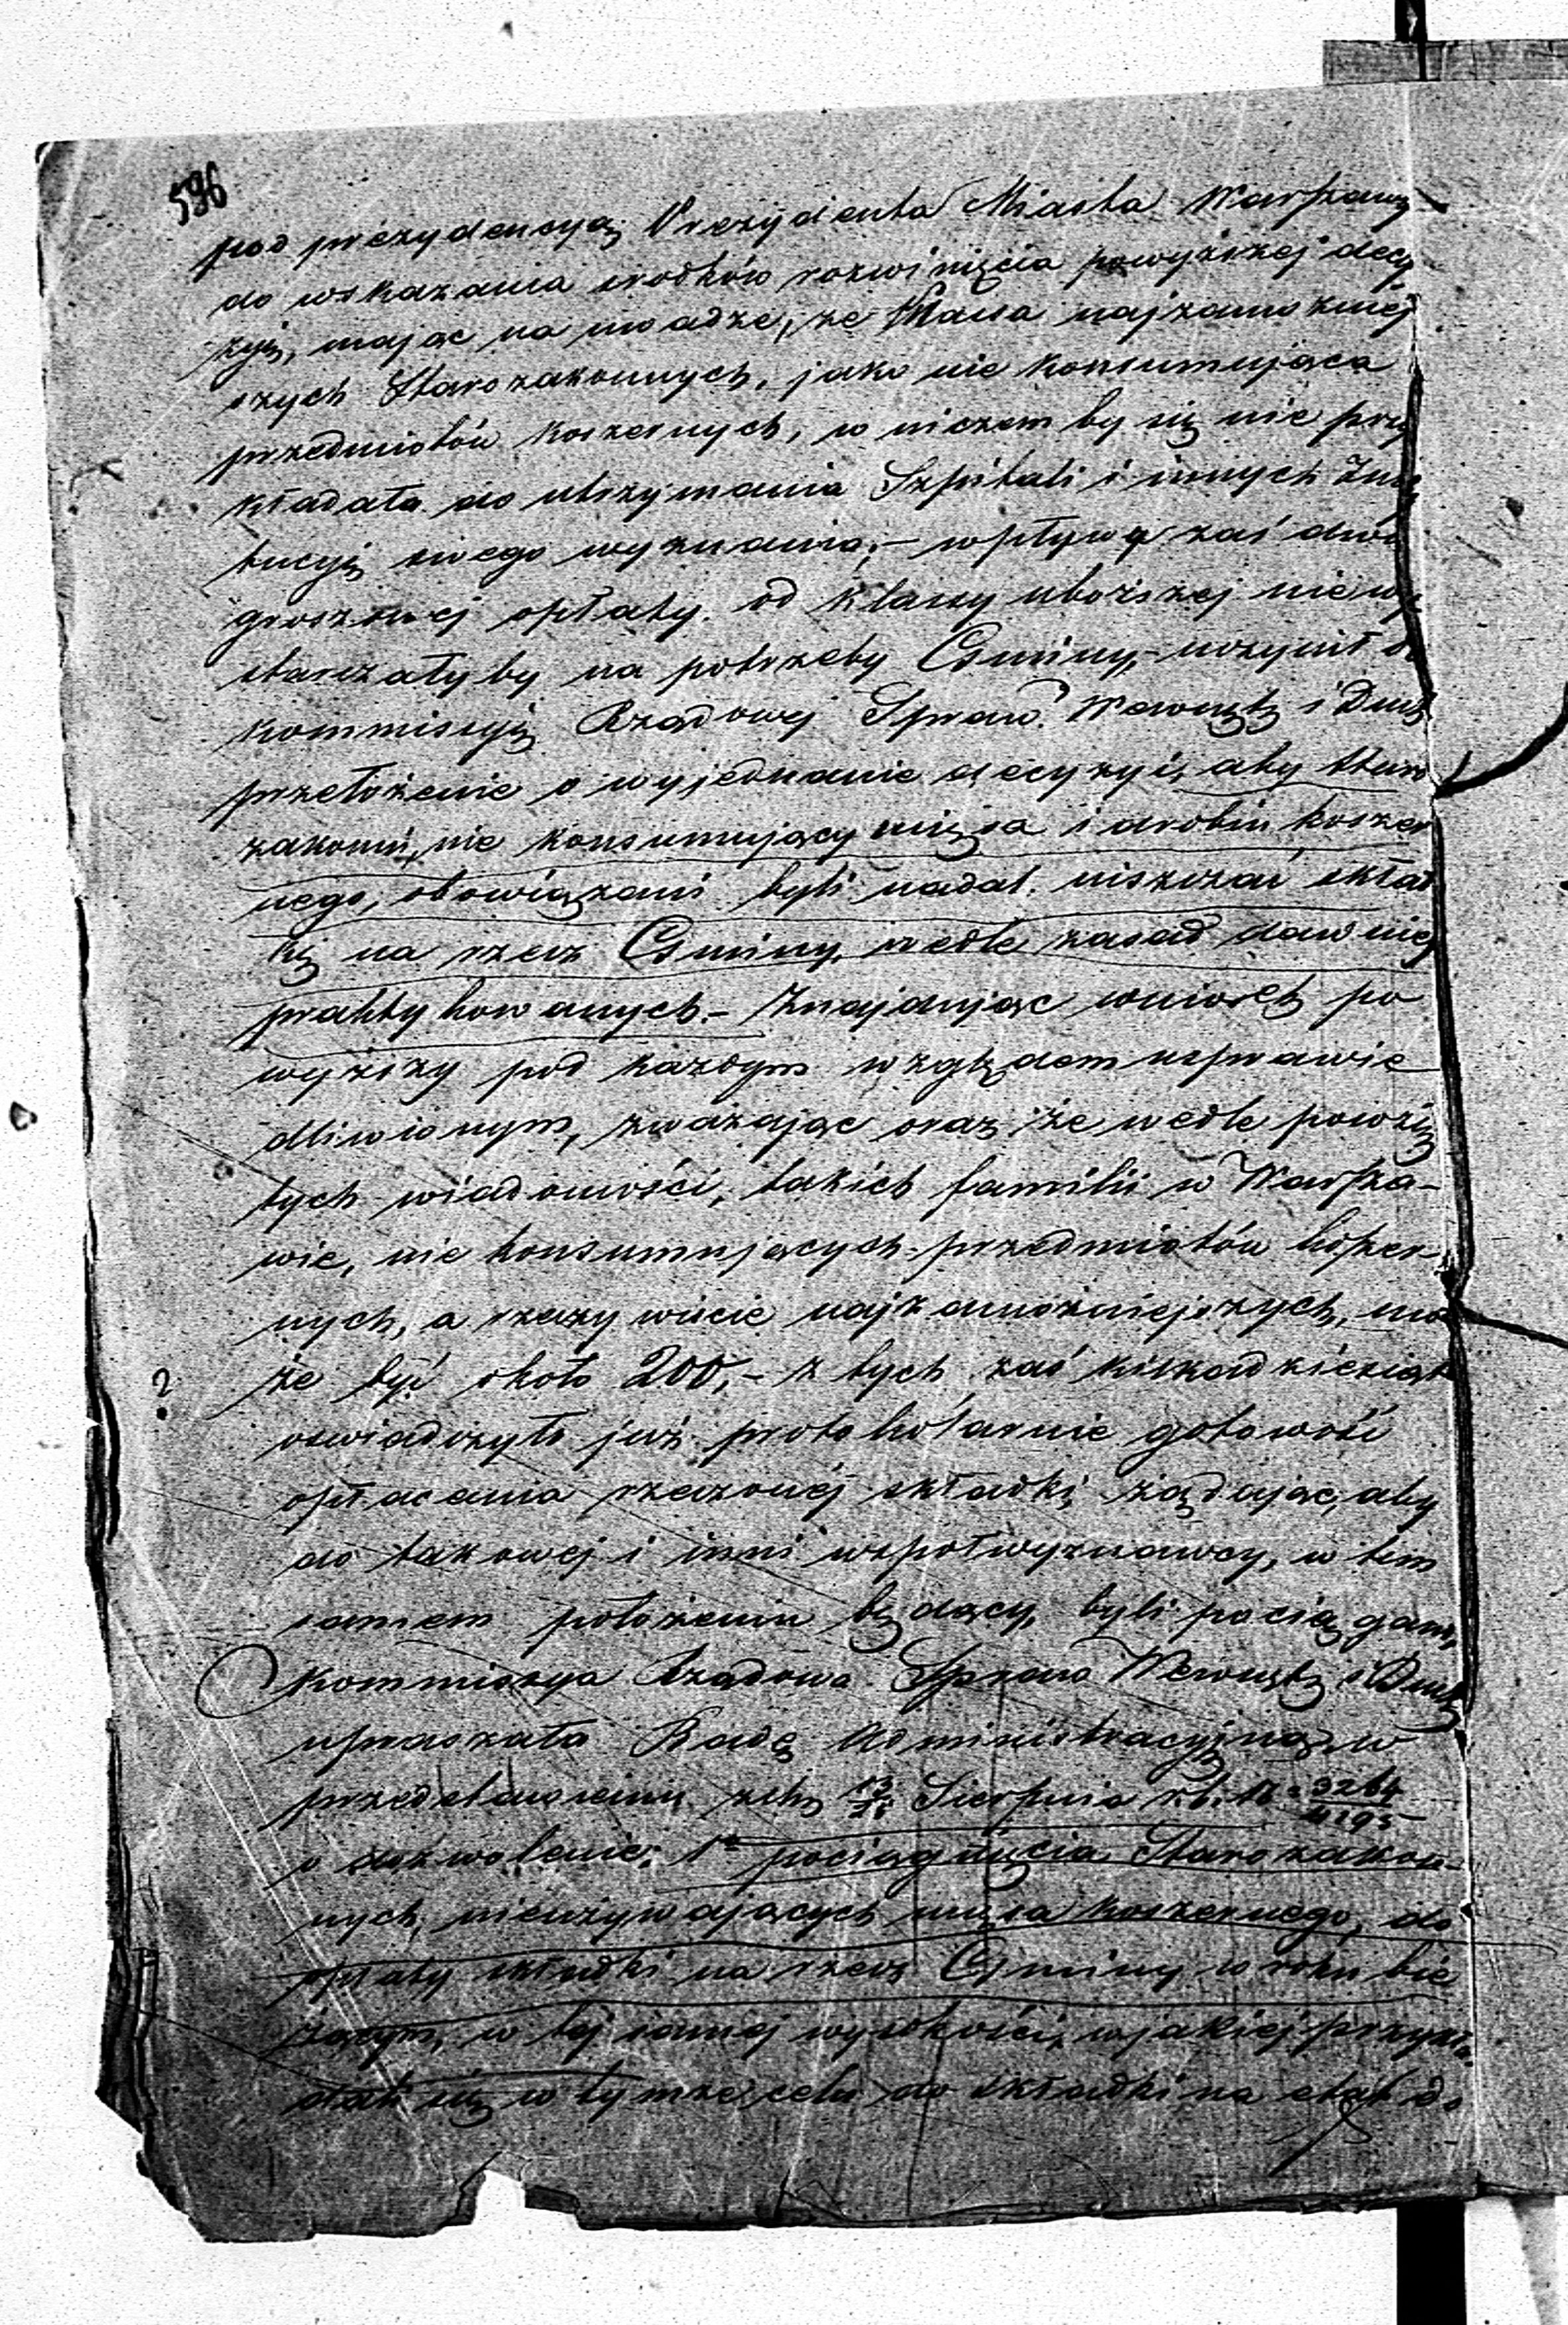 596
pod prezydencyą Prezydenta Miasta Warszawy
do wskazania srodków rozwinięcia powyższej decy
zyi, mając na uwadze, że Klassa najzamożniej
szych Starozakonnych, jako nie konsumująca
przedmiotów koszernych, w niczem by się nie przy
kładała do utrzymania Szpitali i innych Insty
tucyi swego wyznania; – wpływy zaś dwu
groszowej opłaty od klassy uboższej nie wy
starczałyby na potrzeby Gminy, – uczynił do
Kommissyi Rządowej Spraw Wewnętz i Duch
przełożenie o wyjednanie decyzyi, aby Staro
zakonni, nie konsumujący mięsa i drobiu koszer
nego, obowiązani byli nadal uiszczać skład
kę na rzecz Gminy, wedle zasad dawniej
praktykowanych. – Znajdując wniosek po
wyższy pod każdym względem usprawie
dliwionym, zważając oraz że wedle powzię
tych wiadomości, takich familii w Warsza-
wie, nie konsumujących przedmiotów koszer
nych, a rzeczywiście najzamożniejszych, mo
? że być około 200, – z tych zaś kilkadziesiąt
oswiadczyło już protokolarnie gotowość
opłacania rzeczonej składki, żądając, aby
do takowej i inni współwyznawcy, w tem
samem położeniu będący, byli pociągani,
Kommissya Rządowa Spraw Wewnętz i Duch
upraszała Radę Administracyjną w
przedstawieniu Sierpnia r.b. N 3264/4195
o dozwolenie: 1º pociągnięcia Starozakon-
nych, nieużywających mięsa koszernego, do
opłaty składki na rzecz Gminy w roku bie
żącym, w tej samej wysokości, w jakiej przykła
dali się w tymże celu do składki na etat do